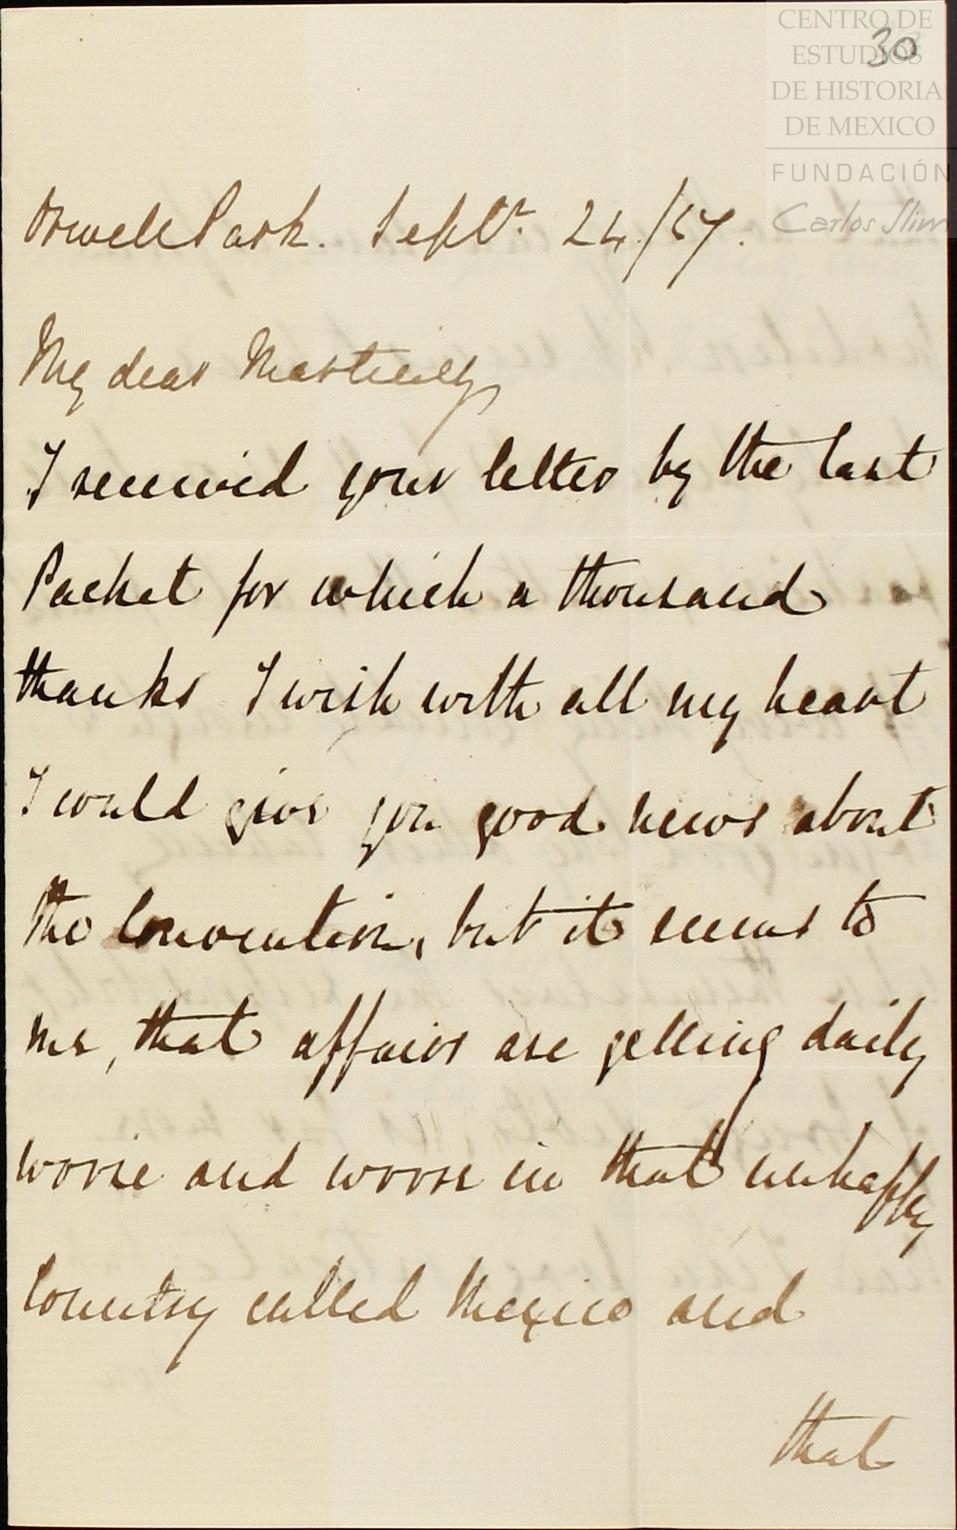 CENTRO DE
ESTUDIOS
DE HISTORIA
DE MEXICO
FUNDACIÓN
Carlos Slim
30
Orwell Park. Septr. 24/57.
My dear
I received your letter by the last
Packet for which a thousand
thanks I wish with all my heart
I could give you good news about
the Convention, but it seems to
me, that affairs are getting daily
worse and worse in that unhappy
Country called Mexico and
that